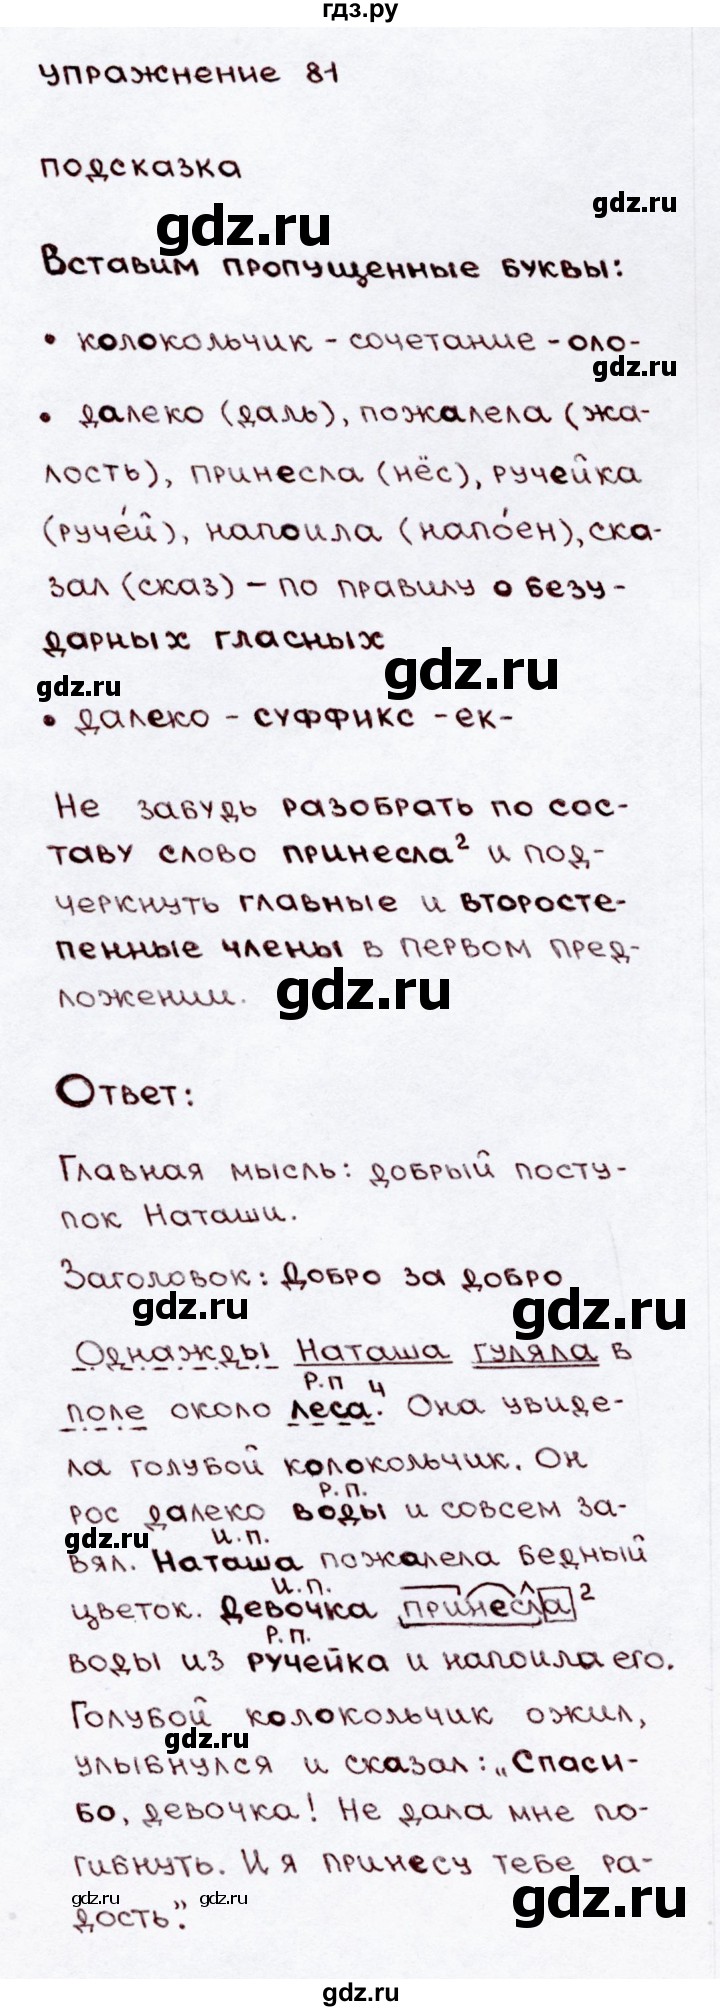 гдз.ру
упражнение 81
подсказка
gdz.ru
gdz.ru
Вставим пропущенные буквы:
• колокольчик - сочетание -оло-
gdz.ru
• далеко (даль), пожалела (жа-
лость), принесла (нёс), ручейка
(руче́й), напоила (напо́ен), ска-
зал (сказ) – по правилу о безу-
дарных гласных
gdz.ru
gdz.ru
• далеко - суффикс -ек-
Не забудь разобрать по сос-
таву слово принесла² и под-
черкнуть главные и второсте-
пенные члены в первом пред-
ложении.
gdz.ru
Ответ:
Главная мысль: добрый посту-
пок Наташи.
Заголовок: Добро за добро
gdz.ru
gdz.ru
Однажды Наташа гуляла в
Р.п 4
поле около леса. Она увиде-
ла голубой колокольчик. Он
Р.п.
рос далеко воды и совсем за-
gdz.ru
И.п.
вял. Наташа пожалела бедный
И.п.
цветок. Девочка принесла²
Р.п.
воды из ручейка и напоила его.
Голубой колокольчик ожил,
gdz.ru
улыбнулся и сказал: „Спаси-
бо, девочка! Не дала мне по-
гибнуть. И я принесу тебе ра-
gdz.ru
gdz.ru
gdz.ru
дость".
gdz.ru